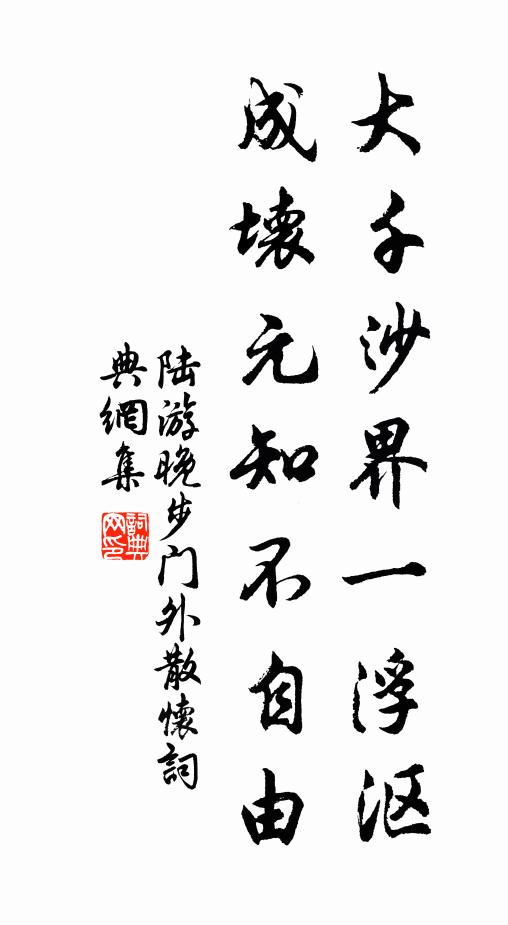 大千沙界一浮沤
成壞元知不自由
陆游晚步门外散懷詞
典網集
詞典網印